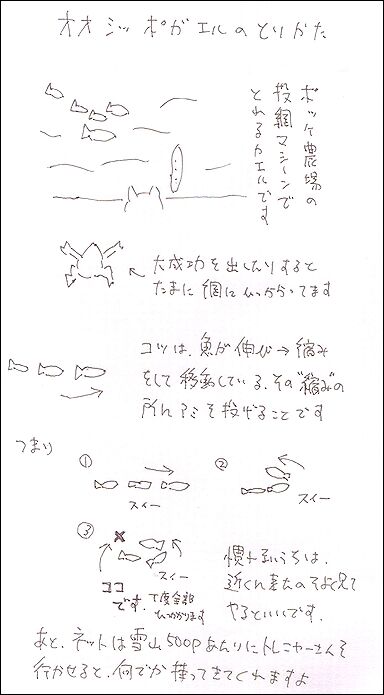 オオシッポガエルのとりかた
ポッケ農場の
投網マシーンで
とれるカエルです
大成功を出したりすると
たまに網にひっかかってます
コツは、魚が伸び→縮み
をして移動している、その"縮み"の
所にアミを投げることです
つまり
①
スイー
②
スイー
③
スイー
ココ
です。
丁度全部
ひっかかります
慣れないうちは、
近くに来たのをよく見て
やるといいです.
あと、ネットは雪山500pあたりにトレニャーさんを
行かせると、何でか拾ってきてくれますよ